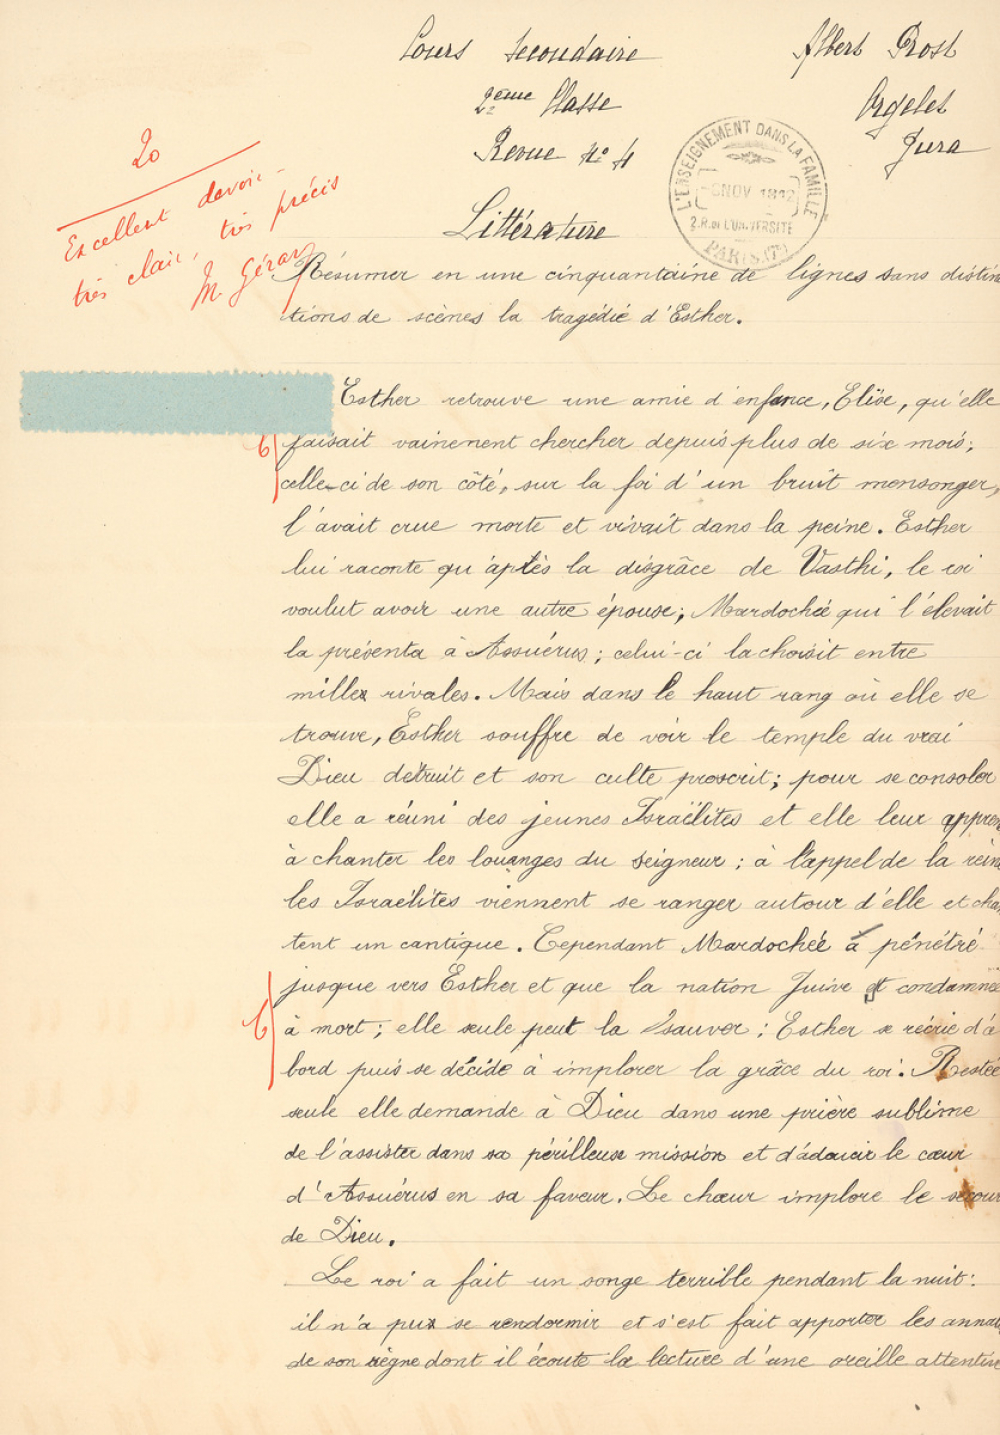 Cours Secondaire
Albert Prost
2ème Classe
Orgelet
Revue No 4
Jura
L'ENSEIGNEMENT DANS LA FAMILLE
NOV
2.R. DE L'UNIVERSITÉ
PARIS (7e)
20
Excellent devoir
très clair, très précis
M. Gérard
Littérature
Résumer en une cinquantaine de lignes sans distinc
tions de scènes la tragédie d'Esther.
Esther retrouve une amie d'enfance, Elise, qu'elle
faisait vainement chercher depuis plus de six mois;
celle-ci de son côté, sur la foi d'un bruit mensonger,
l'avait crue morte et vivait dans la peine. Esther
lui raconte qu'après la disgrâce de Vasthi, le roi
voulut avoir une autre épouse; Mardochée qui l'élevait
la présenta à Assuérus; celui-ci la choisit entre
mille rivales. Mais dans le haut rang où elle se
trouve, Esther souffre de voir le temple du vrai
Dieu détruit et son culte proscrit; pour se consoler
elle a réuni des jeunes Israëlites et elle leur appren
à chanter les louanges du Seigneur; à l'appel de la rein
les Israélites viennent se ranger autour d'elle et cha
tent un cantique. Cependant Mardochée a pénétré
jusque vers Esther et que la nation Juive est condamnée
à mort; elle seule peut la sauver: Esther se récrie d'a
bord puis se décide à implorer la grâce du roi. Restée
seule elle demande à Dieu dans une prière sublime
de l'assister dans sa périlleuse mission et d'adoucir le cœur
d'Assuérus en sa faveur. Le chœur implore le secour
de Dieu.
Le roi a fait un songe terrible pendant la nuit:
il n'a pu se rendormir et s'est fait apporter les annal
de son règne dont il écoute la lecture d'une oreille attentive